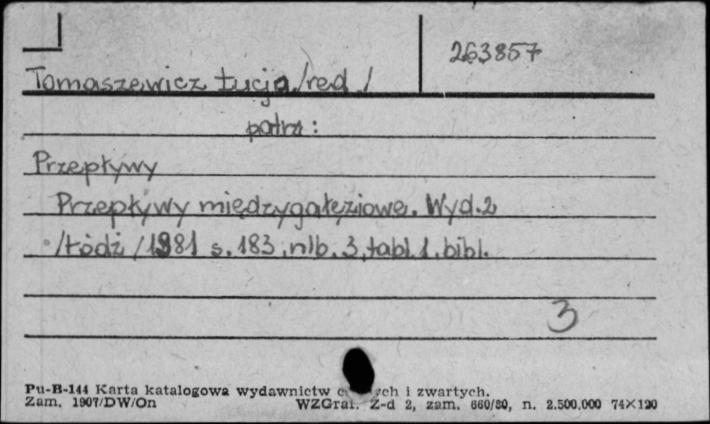 263857
Tomaszewicz Łucja /red./
patrz:
Przepływy
Przepływy międzygałęziowe. Wyd.2
/Łódź/1981 s. 183, nlb. 3, tabl. 1. bibl.
3
Pu-B-144 Karta katalogowa wydawnictw i zwartych.
Zam. 1907/DW/On WZGraf. Z-d 2, zam. 660/80, n. 2.500.000 74×120